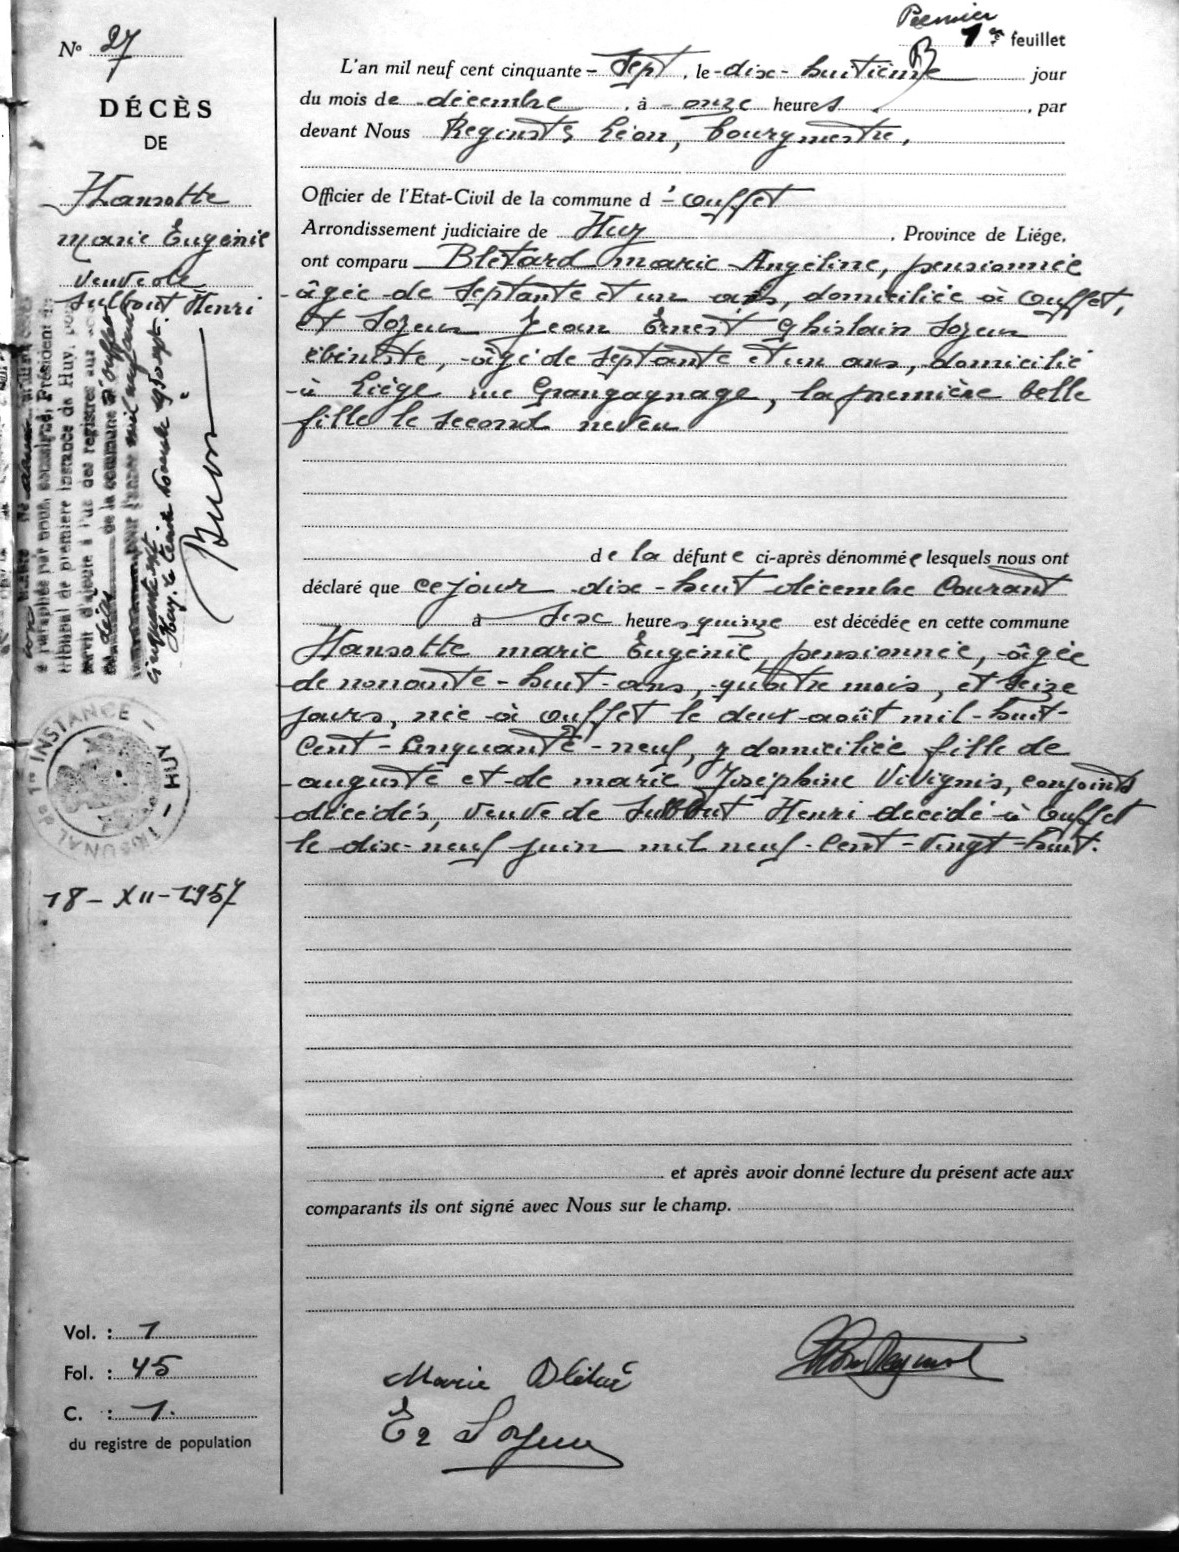 Premier
1er feuillet
N° 27
DÉCÈS
DE
Hansotte
Marie Eugénie
veuve de
Sulbout Henri
L'an mil neuf cent cinquante-sept, le dix-huitième jour
du mois de décembre, à onze heures, par
devant Nous Léon, bourgmestre,
Officier de l'Etat-Civil de la commune d'Ouffet
Arrondissement judiciaire de Huy, Province de Liége,
ont comparu Blétard Marie Angéline, pensionnée
âgée de septante et un ans, domiciliée à Ouffet,
et Joyeux Jean Ernest Ghislain Joyeux
ébéniste, âgé de septante et un ans, domicilié
à Liège rue Grangagnage, la première belle
fille le second neveu
de la défunte ci-après dénommée lesquels nous ont
déclaré que ce jour dix-huit décembre courant
à six heures quinze est décédée en cette commune
Hansotte Marie Eugénie, pensionnée, âgée
de nonante-huit ans, quatre mois, et seize
jours, née à Ouffet le deux août mil-huit-
cent-cinquante-neuf, y domiciliée fille de
Auguste et de Marie Joséphine Vivignis, conjoints
décédés, veuve de Sulbout Henri décédé à Ouffet
le dix-neuf juin mil neuf-cent-vingt-huit.
et après avoir donné lecture du présent acte aux
comparants ils ont signé avec Nous sur le champ.
paraphé par nous soussigné, Président du
tribunal de première instance de Huy, pour
servir d'ajoute à l'un des registres aux actes
de décès de la commune d'Ouffet
pour l'année mil neuf cent
cinquante-sept.
TRIBUNAL de 1re INSTANCE - HUY -
18-XII-1957
Vol. : 1
Fol. : 45
C. : 1.
du registre de population
Marie Blétard